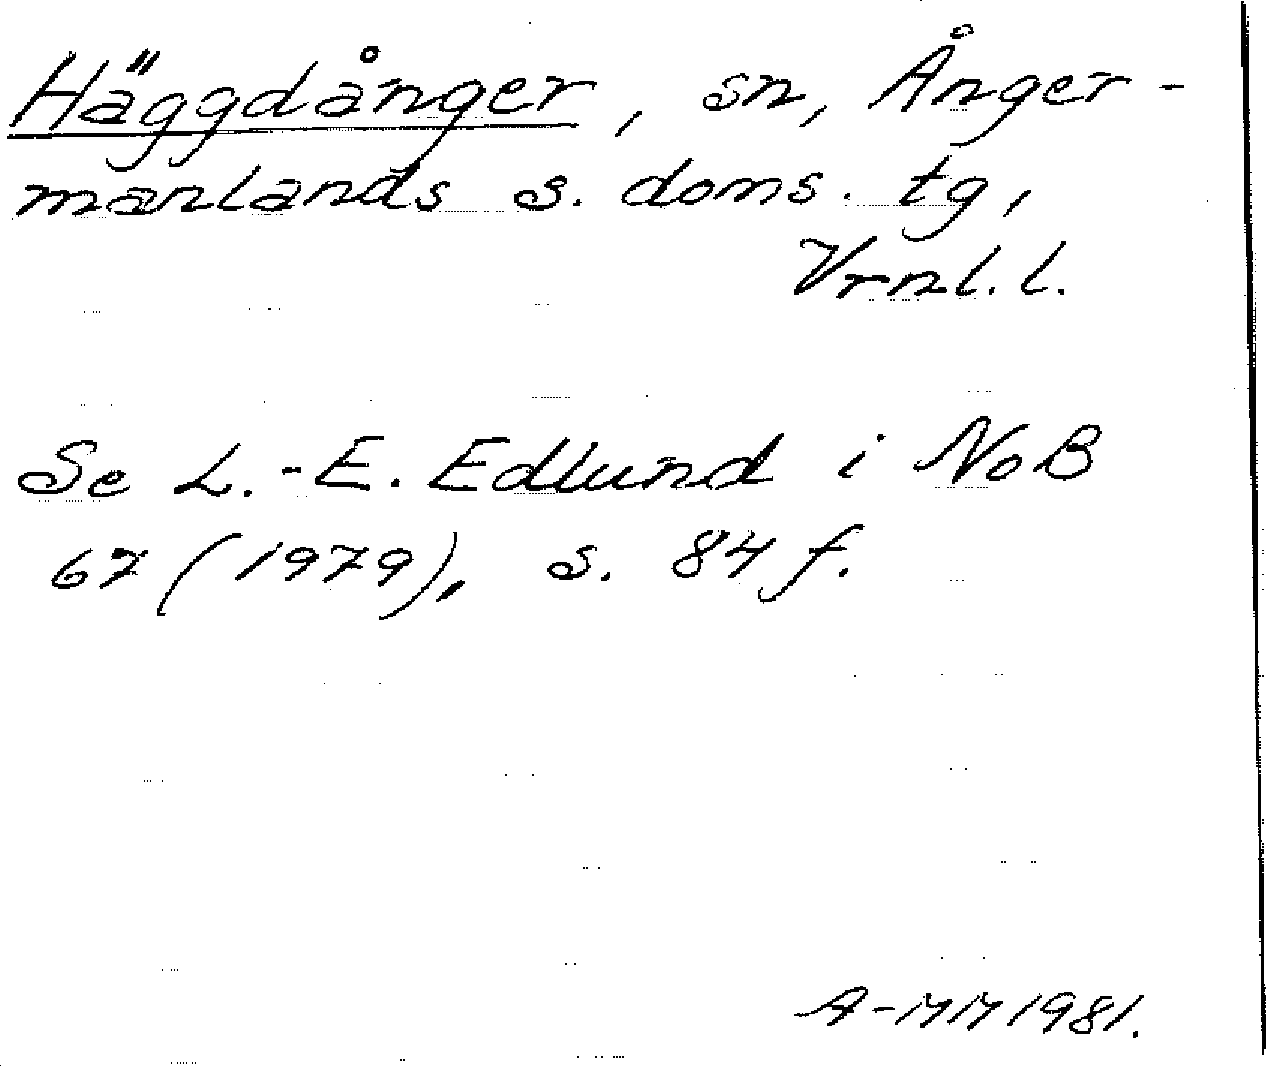 Häggdånger, sn, Ånger-
manlands s. doms. tg,
Vrnl. l.
Se L.-E. Edlund i NoB
67 (1979), s. 84 f.
A-MM 1981.